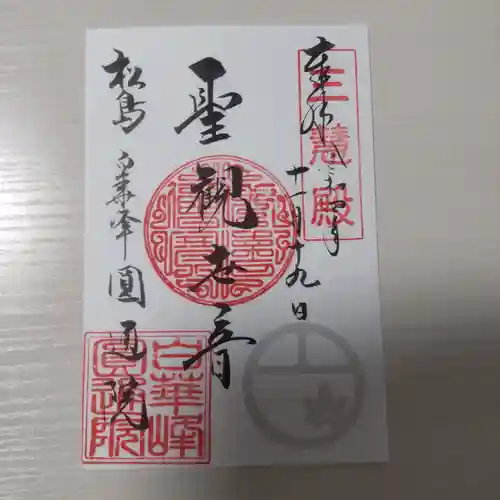 奉拝
三慧殿
令和四年
十一月十九日
聖観世音
松島
白華峰圓通院
白華峰
圓通院